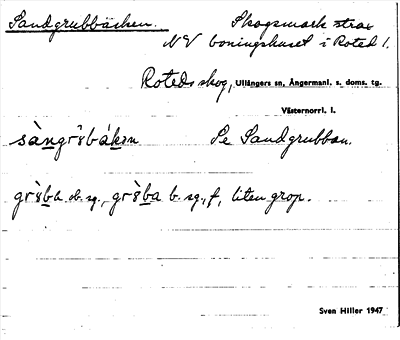 Sandgrubbäcken. Skogsmark strax
NV boningshuset i Roted 1.
Roteds skog, Ullångers sn, Ångermanl. s. doms. tg.
Västernorrl. l.
Se Sandgrubban.
ob. sg., b. sg., f., liten grop.
Sven Hiller 1947